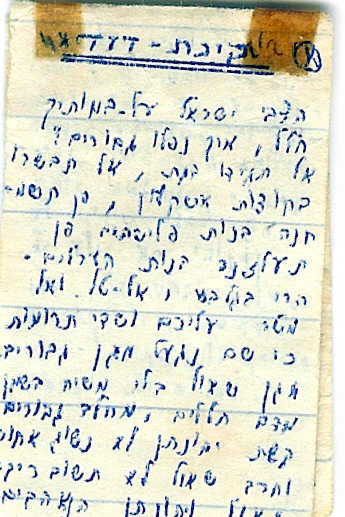 הצבי ישראל על-במותיך
חלל, איך נפלו גבורים?
אל תגידו בגת, אל תבשרו
בחוצות אשקלון, פן תשמ-
חנה בנות פלישתים פן
תעלזנה בנות הערלים.
הרי בגלבע, אל-טל ואל
מטר עליכם ושדי תרומות
כי שם נגעל מגן גבורים
מגן שאול בלי משיח בשמן
מדם חללים, מחלב גבורים
קשת יהונתן לא נשוג אחור
וחרב שאול לא תשוב ריק
שאול ויהונתן הנאהבים